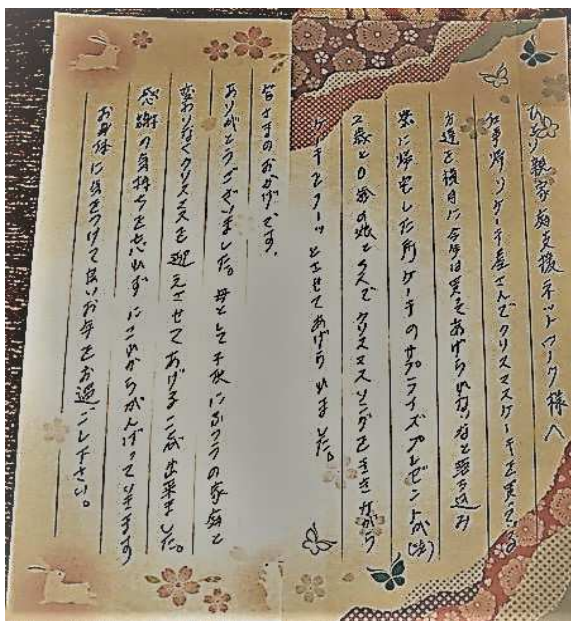 ひとり親家庭支援ネットワーク様へ
仕事帰りケーキ屋さんでクリスマスケーキを買ってる
方達を横目に今年は買ってあげられないなと落ち込み
家に帰宅した所ケーキのサプライズプレゼントが(泣)
2歳と0歳の娘と3人でクリスマスソングをききながら
ケーキをフーッとさせてあげられました。
皆さまのおかげです。
ありがとうございました。母として子供にふつうの家庭と
変わりなくクリスマスを迎えさせてあげることが出来ました。
感謝の気持ちを忘れずにこれからもがんばっていきます
お身体に気をつけて良いお年をお過ごし下さい。